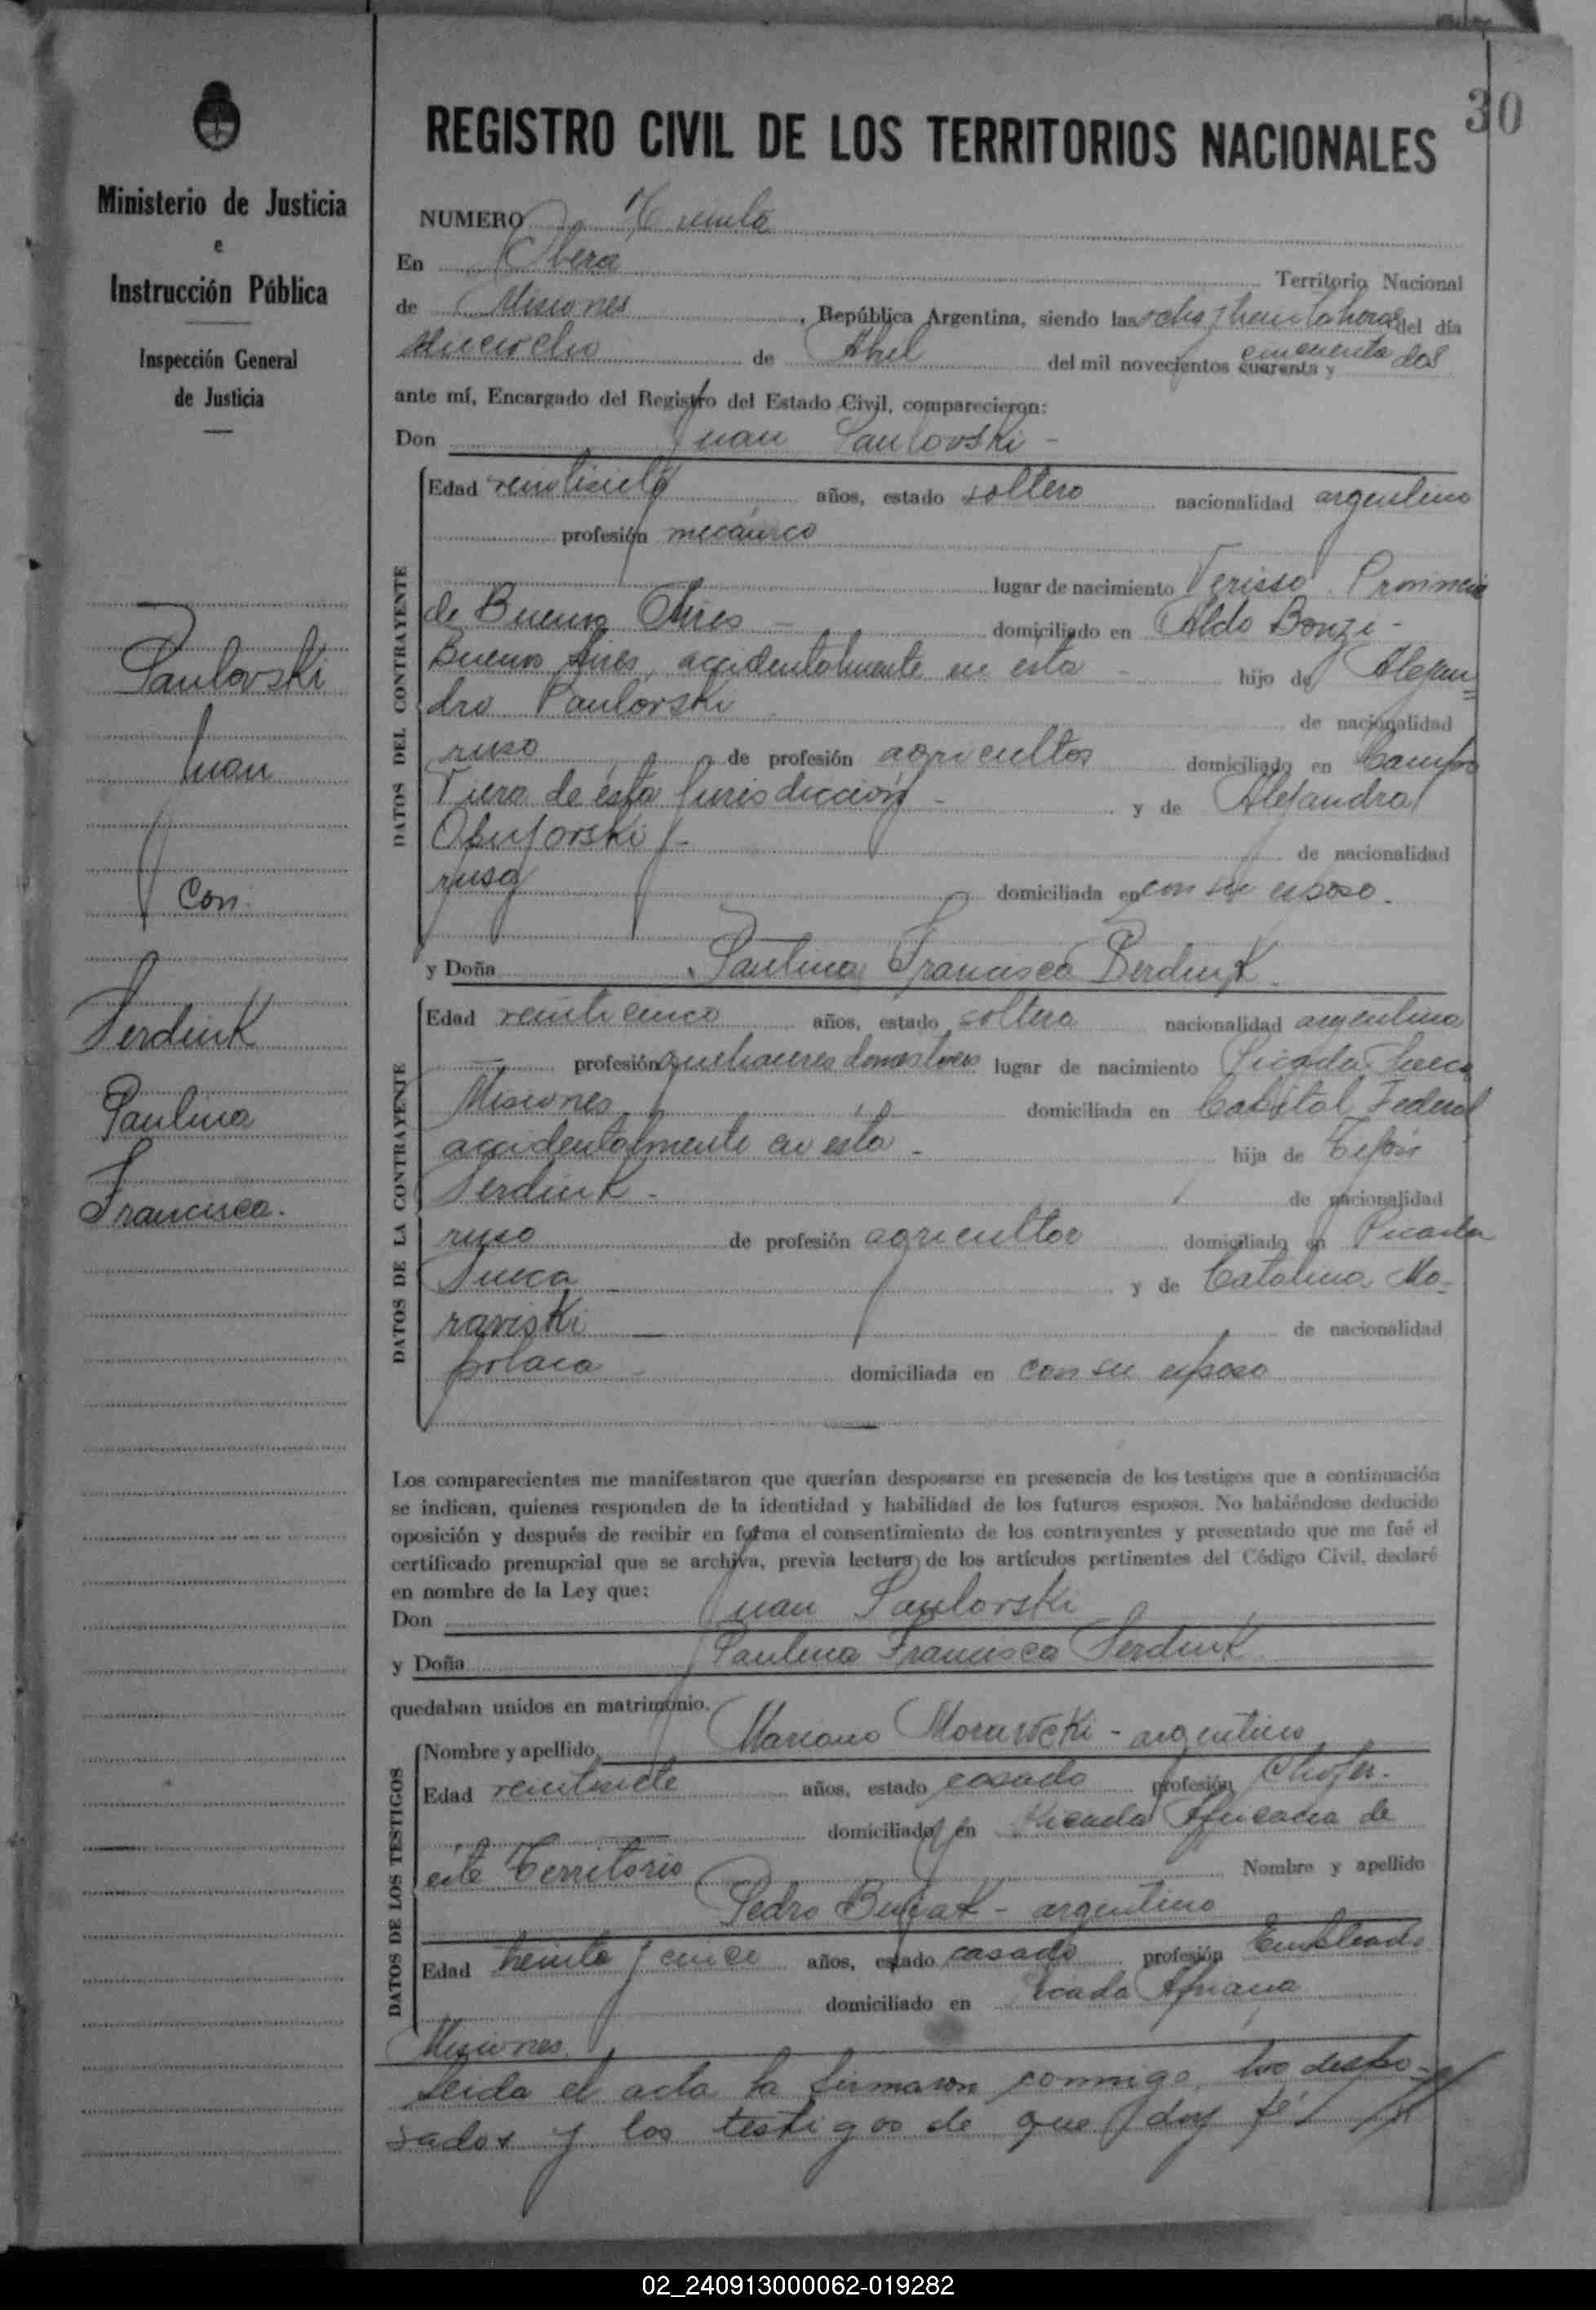 30
Ministerio de Justicia
e
Instrucción Pública
Inspección General
de Justicia
Paulovski
Juan
Con
Serdiuk
Paulina
Francisca.
REGISTRO CIVIL DE LOS TERRITORIOS NACIONALES
NUMERO Treinta
En Oberá Territorio Nacional
de Misiones, República Argentina, siendo las ocho y treinta horas del día
dieciocho de Abril del mil novecientos cuarenta y cincuenta dos
ante mí, Encargado del Registro del Estado Civil, comparecieron:
Don Juan Paulovski -
DATOS DEL CONTRAYENTE
Edad veintisiete años, estado soltero nacionalidad argentino
profesión mecánico
lugar de nacimiento Verisso Provincia
de Buenos Aires - domiciliado en Aldo Bonzi -
Buenos Aires, accidentalmente en esta - hijo de Alejan=
dro Paulovski de nacionalidad
ruso de profesión agricultor domiciliado en Campo
Viera de ésta Jurisdicción - y de Alejandra
de nacionalidad
rusa domiciliada en con su esposo.
y Doña Paulina Francisca Serdiuk
DATOS DE LA CONTRAYENTE
Edad veinticinco años, estado soltera nacionalidad argentina
profesión quehaceres domesticos lugar de nacimiento Picada Sueca
Misiones domiciliada en Capital Federal
accidentalmente en esta - hija de
Serdiuk - de nacionalidad
ruso de profesión agricultor domiciliado en Picada
Sueca - y de Catalina Mo-
raviski - de nacionalidad
polaca - domiciliada en con su esposo
Los comparecientes me manifestaron que querían desposarse en presencia de los testigos que a continuación
se indican, quienes responden de la identidad y habilidad de los futuros esposos. No habiéndose deducido
oposición y después de recibir en forma el consentimiento de los contrayentes y presentado que me fué el
certificado prenupcial que se archiva, previa lectura de los artículos pertinentes del Código Civil, declaré
en nombre de la Ley que:
Don Juan Paulovski
y Doña Paulina Francisca Serdiuk
quedaban unidos en matrimonio.
DATOS DE LOS TESTIGOS
Nombre y apellido Mariano Morawcki - argentino
Edad veintisiete años, estado casado profesión Chofer.
domiciliado en Picada Africana de
este Territorio Nombre y apellido
Pedro - argentino
Edad treinta y cinco años, estado casado profesión Empleado
domiciliado en Picada Africana
Misiones.
Leida el acta la firmaron conmigo, los despo-
sados y los testigos de que doy fé
02_240913000062-019282